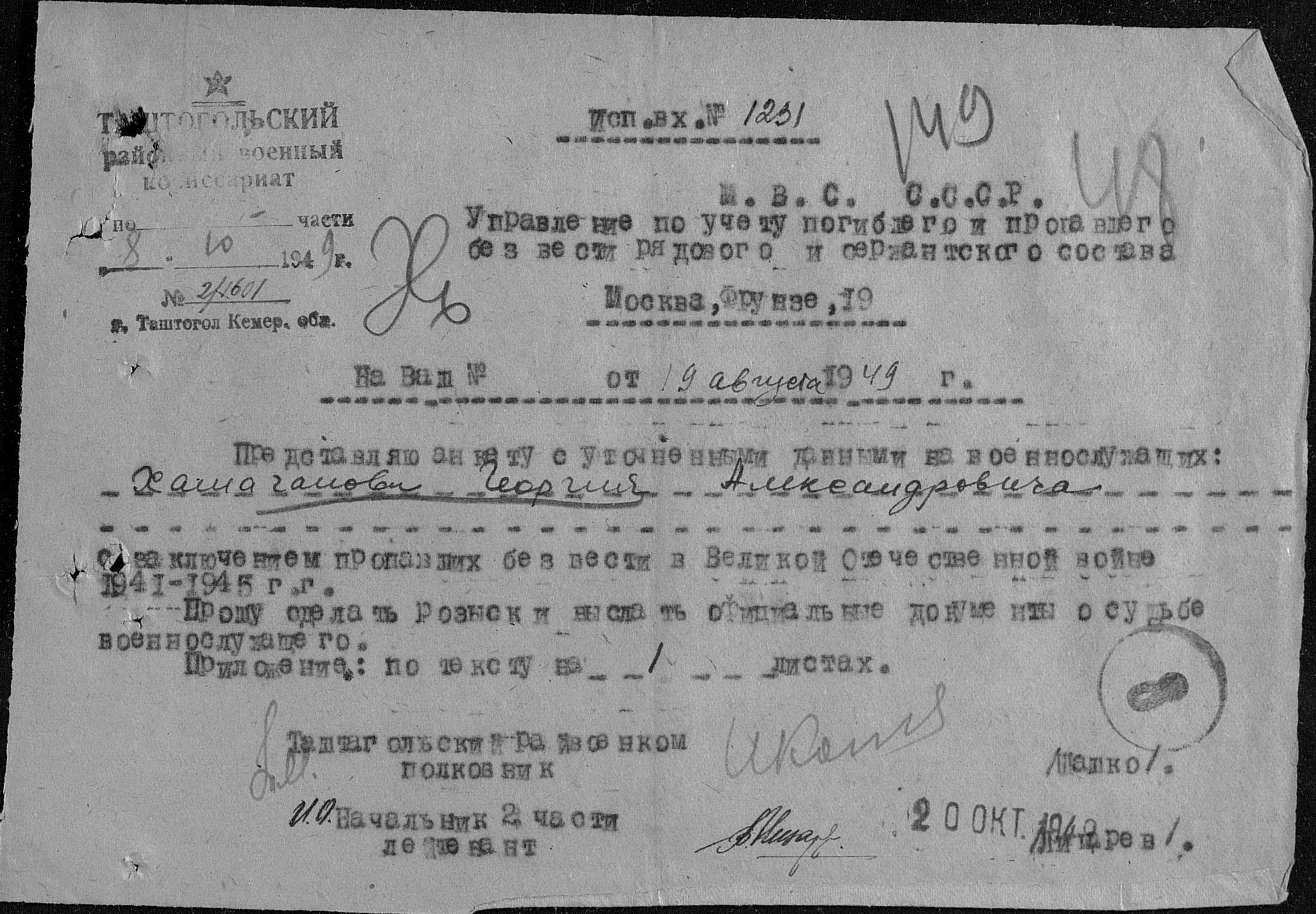 ТАШТОГОЛЬСКИЙ
районный военный
комиссариат
по - части
8 - 10 1949 г.
№ 2/4601
г. Таштогол Кемер. обл.
Исп.вх.№ 1231
М. В. С. С.С.С.Р.
Управление по учету погиблего и пропавлего
без вести рядового и сержантского состава
Москва,Фрунзе,19
На Ваш № от 19 августа 1949 г.
Представляю анкету с уточненными данными на военнослужащих:
Георгия Александровича
с заключением пропавших без вести в Великой Отечественной войне
1941-1945 г.г.
Прошу сделать розыск и выслать официальные документы о судьбе
военнослужащего.
Приложение: по тексту на 1 листах.
Таштагольский райвоенком
полковник /Шалко/.
И.О. Начальник 2 части
лейтенант
20 ОКТ. 1949